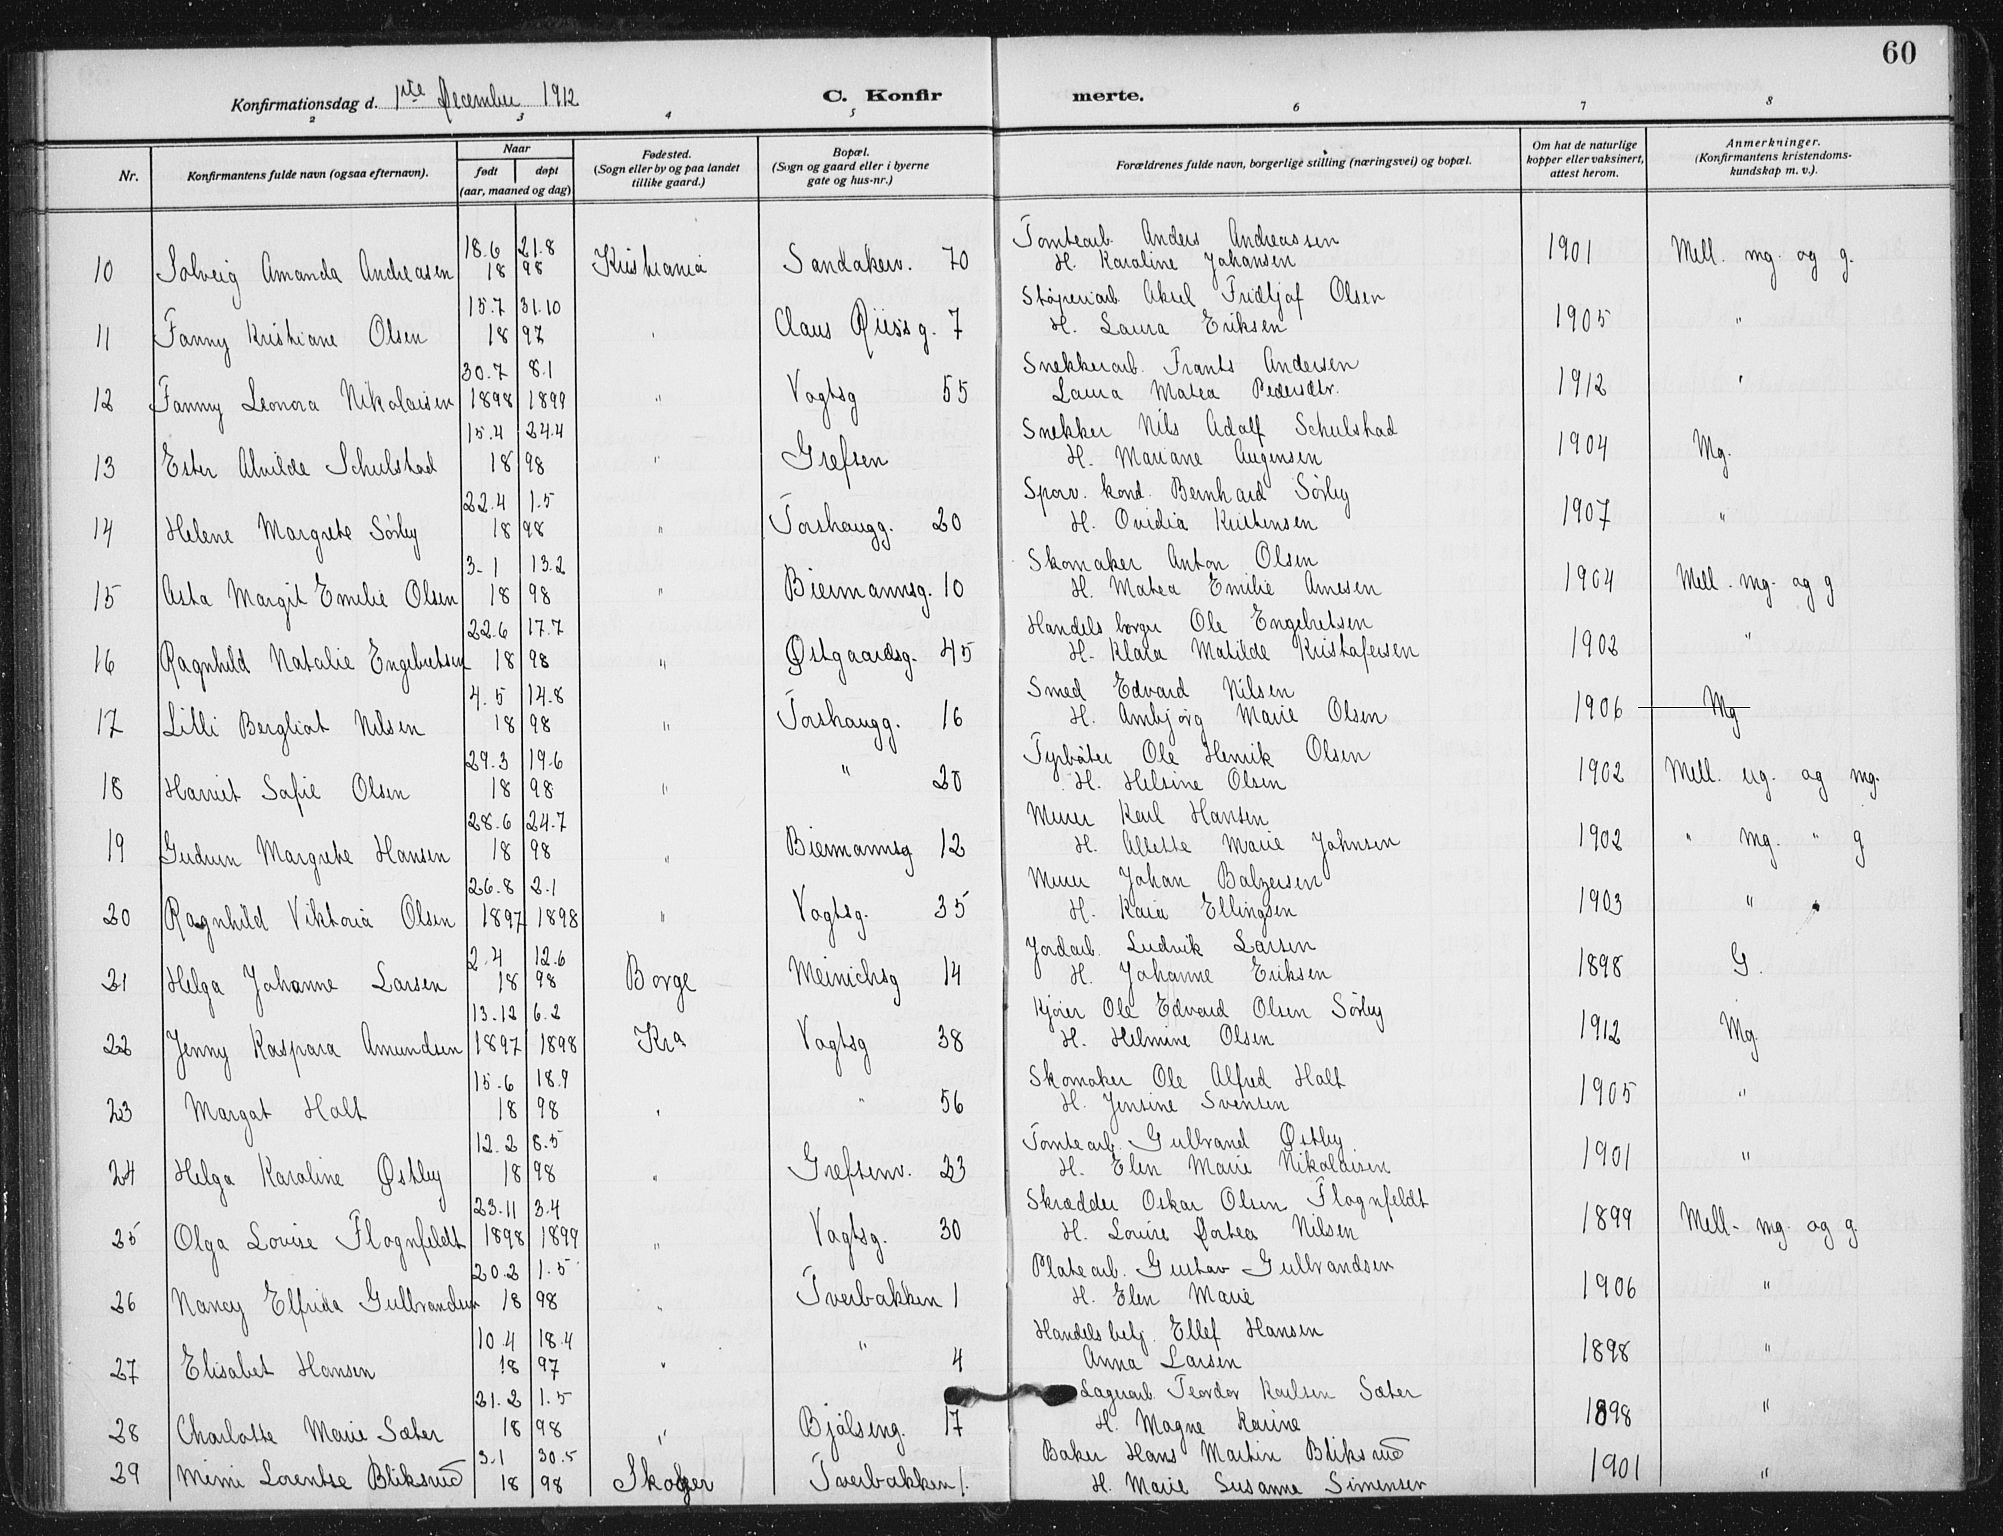 60
Konfirmationsdag d. 1ste December 1912 C. Konfirmerte.
2 3 4 5 6 7 8
Nr. Konfirmantens fulde navn (ogsaa efternavn). Naar født døpt (aar, maaned og dag) Fødested. (Sogn eller by og paa landet tillike gaard.) Bopæl. (Sogn og gaard eller i byerne gate og hus-nr.) Forældrenes fulde navn, borgerlige stilling (næringsvei) og bopæl. Om hat de naturlige kopper eller vaksinert, attest herom. Anmerkninger. (Konfirmantens kristendomskundskap m. v.).
18.6 21.8 Tomtearb. Anders Andreassen
10 Solveig Amanda Andreasen 18 98 Kristiania Sandakerv. 70 H. Karoline Johansen 1901 Mell. mg. og g.
15.7 31.10 Støperiarb. Aksel Fridtjof Olsen
11 Fanny Kristiane Olsen 18 97 " Claus Riiss g. 7 H. Laura Eriksen 1905 "
30.7 8.1 Snekkerarb. Frants Andersen
12 Fanny Leonora Nikolaisen 1898 1899 " Vogtsg 55 Laura Matea Pedersdtr. 1912 "
15.4 24.4 Snekker Nils Adolf Schulstad
13 Ester Alvilde Schulstad 18 98 " Grefsen H. Mariane Augensen 1904 Mg.
22.4 1.5 Sporv. kond. Bernhard Sørby
14 Helene Margrete Sørby 18 98 " Torshaugg. 20 H. Ovidia Kristensen 1907 "
3.1 13.2 Skomaker Anton Olsen
15 Asta Margit Emilie Olsen 18 98 " Biermannsg. 10 H. Matea Emilie Arnesen 1904 Mell. mg. og g
22.6 17.7 Handelsborger Ole Engebretsen
16 Ragnhild Natalie Engebretsen 18 98 " Østgaardsg. 45 H. Klara Matilde Kristofersen 1902 "
4.5 14.8 Smed Edvard Nilsen
17 Lilli Bergliot Nilsen 18 98 " Torshaugg. 16 H. Ambjørg Marie Olsen 1906 Mg
29.3 19.6 Fyrbøter Ole Henrik Olsen
18 Harriet Sofie Olsen 18 98 " " 20 H. Helsine Olsen 1902 Mell. ug. og mg.
28.6 24.7 Murer Karl Hansen
19 Gudrun Margrete Hansen 18 98 " Biermannsg 12 H. Allette Marie Johnsen 1902 " mg. " g
26.8 2.1 Murer Johan Balzersen
20 Ragnhild Viktoria Olsen 1897 1898 " Vogtsg. 35 H. Kaia Ellingsen 1903 "
2.4 12.6 Jordarb. Ludvik Larsen
21 Helga Johanne Larsen 18 98 Borge Meinichsg 14 H. Johanne Eriksen 1898 G.
13.12 6.2 Kjører Ole Edvard Olsen Sørby
22 Jenny Kaspara Amundsen 1897 1898 Kra Vogtsg 38 H. Helmine Olsen 1912 Mg.
15.6 18.9 Skomaker Ole Alfred Holt
23 Margot Holt 18 98 " " 56 H. Jensine Svensen 1905 "
12.2 8.5 Tomtearb. Gulbrand Østby
24 Helga Karoline Østby 18 98 " Grefsenv. 23 H. Elen Marie Nikolaisen 1901 "
23.11 3.4 Skrædder Oskar Olsen Flognfeldt
25 Olga Lovise Flognfeldt 1898 1899 " Vogtsg. 30 H. Lovise Dortea Nilsen 1899 Mell. mg. og g.
20.2 1.5 Platearb. Gustav Gulbrandsen
26 Nancy Elfrida Gulbrandsen 18 98 " Tverbakken 1 H. Elen Marie 1906 "
10.4 18.4 Handelsbetj. Ellef Hansen
27 Elisabet Hansen 18 97 " " 4 Anna Larsen 1898 "
21.2 1.5 Lagerarb. Teordor Karlsen Sæter
28 Charlotte Marie Sæter 18 98 " Bjølseng. 17 H. Magne Karine 1898 "
3.1 30.5 Baker Hans Martin Bliksrud
29 Mimi Lorentse Bliksrud 18 98 Skoger Tverbakken 1. H. Marie Susanne Simensen 1901 "